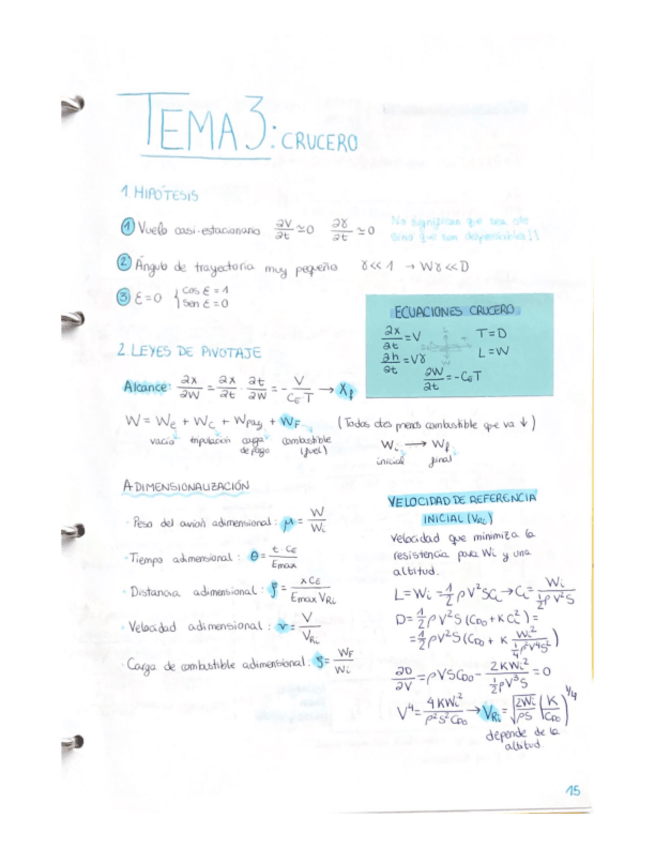 TEMA 3: CRUCERO
1. HIPÓTESIS
① Vuelo casi-estacionario ∂V/∂t ≃ 0 ∂γ/∂t ≃ 0
No significa que sea cte
sino que son despreciables!!
② Ángulo de trayectoria muy pequeño γ<<1 → Wγ<<D
③ ε=0 { cos ε = 1
sen ε = 0
ECUACIONES CRUCERO
∂x/∂t = V T=D
∂h/∂t = Vγ L=W
∂W/∂t = -C_E T
2. LEYES DE PIVOTAJE
Alcance: ∂x/∂W = ∂x/∂t · ∂t/∂W = - V/(C_E T) → X_f
W = W_e + W_c + W_pay + W_F (Todas ctes menos combustible que va ↓)
vacío tripulación carga de pago combustible (fuel)
W_i → W_f
inicial final
ADIMENSIONALIZACIÓN
· Peso del avión adimensional: μ = W/W_i
· Tiempo adimensional: θ = t·C_E/E_max
· Distancia adimensional: ρ = x C_E/(E_max V_Ri)
· Velocidad adimensional: v = V/V_Ri
· Carga de combustible adimensional: ζ = W_F/W_i
VELOCIDAD DE REFERENCIA
INICIAL (V_Ri)
Velocidad que minimiza la
resistencia para W_i y una
altitud.
L = W_i = 1/2 ρV²SC_L → C_L = W_i/(1/2 ρV²S)
D = 1/2 ρV²S (C_D0 + K C_L²) =
= 1/2 ρV²S (C_D0 + K W_i²/(1/4 ρ²V⁴S²))
∂D/∂V = ρVSC_D0 - 2KW_i²/(1/2 ρV³S) = 0
V⁴ = 4KW_i²/(ρ²S²C_D0) → V_Ri = √(2W_i/ρS) (K/C_D0)^1/4
depende de la
altitud.
15